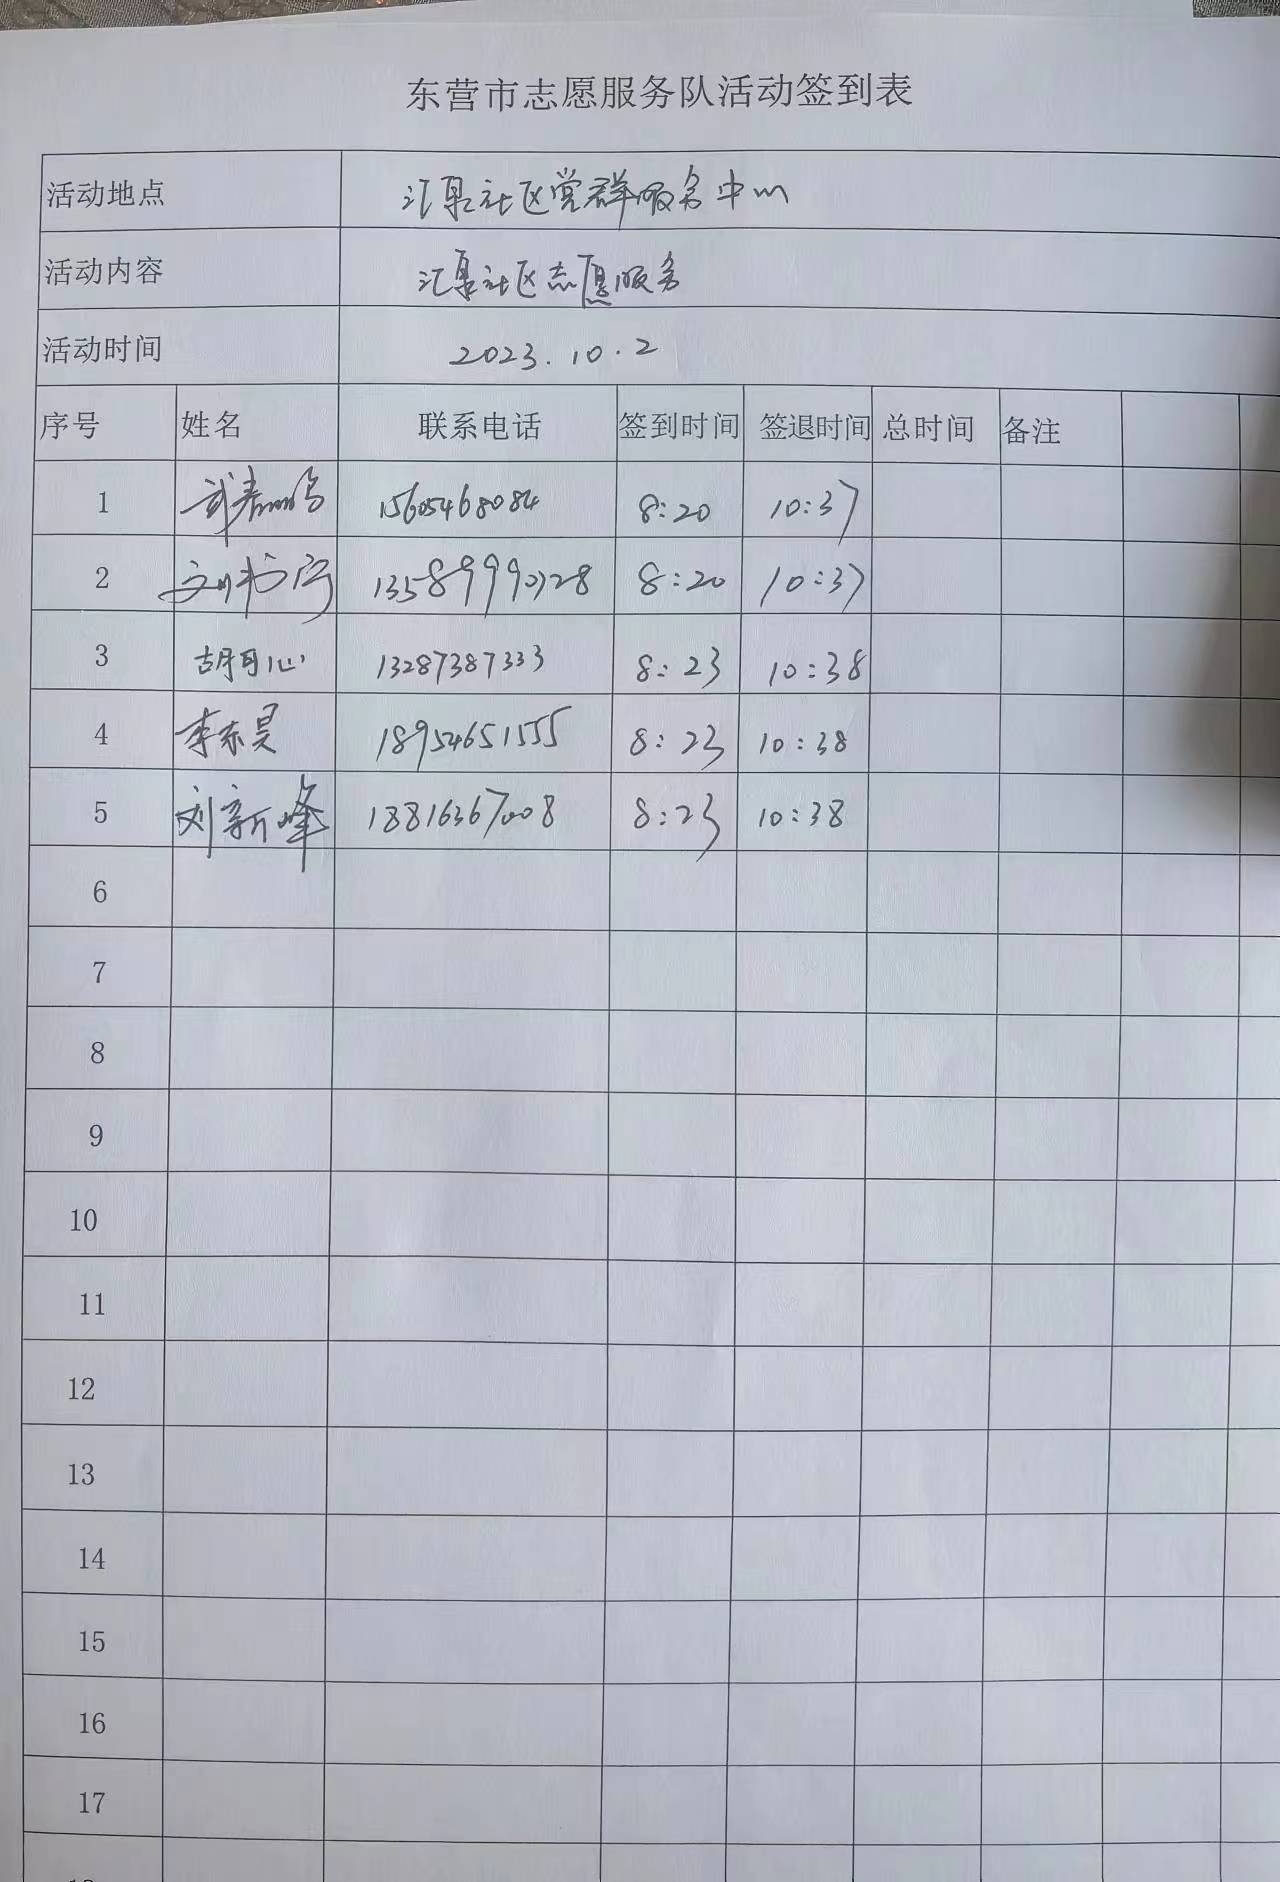 东营市志愿服务队活动签到表
活动地点 汇泉社区党群服务中心
活动内容 汇泉社区志愿服务
活动时间 2023.10.2
序号 姓名 联系电话 签到时间 签退时间 总时间 备注
1 15605468084 8:20 10:37
2 刘书宁 13589990728 8:20 10:37
3 13287387333 8:23 10:38
4 李东昊 18954651555 8:23 10:38
5 刘新峰 18816367008 8:23 10:38
6
7
8
9
10
11
12
13
14
15
16
17